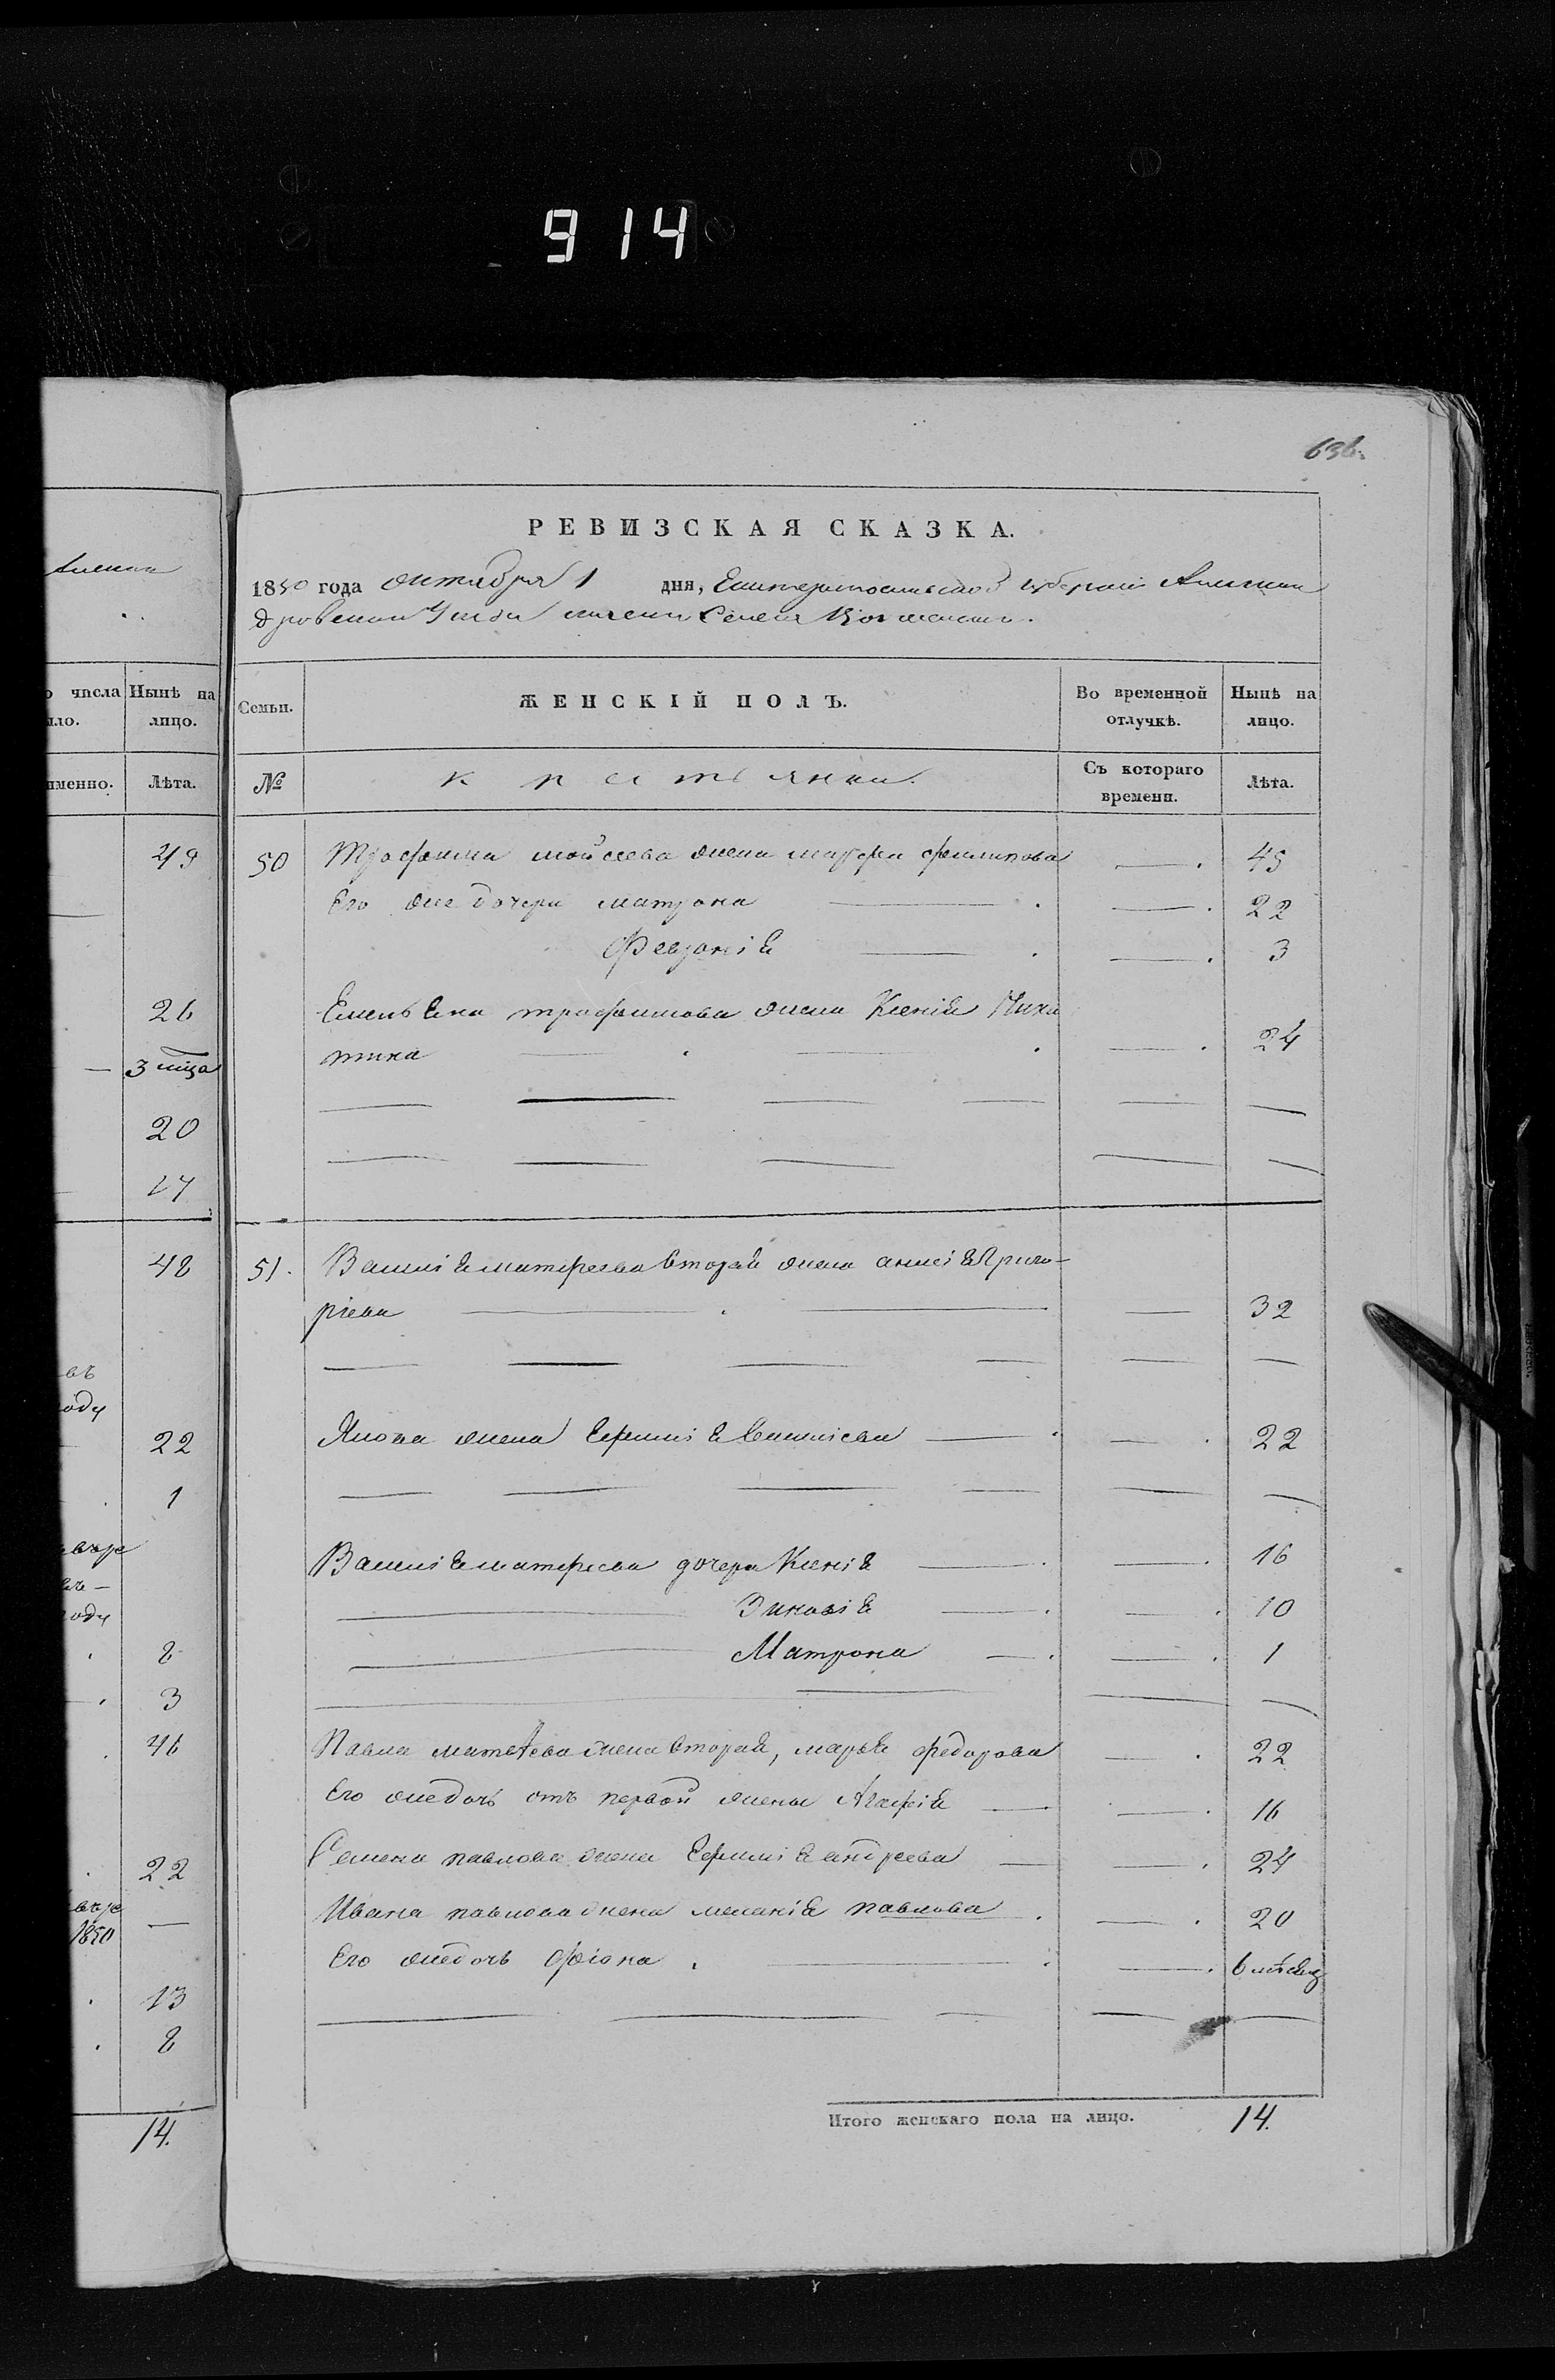 914
636.
РЕВИЗСКАЯ СКАЗКА.
1850 года октября 1 дня, Екатеринославской губернии Алексан
дровскаго Уезда
Семьи. ЖЕНСКІЙ ПОЛЪ. Во временной отлучкѣ. Нынѣ на лицо.
№ крестьянки. Съ котораго времени. Лѣта.
50 Трофима мойсеева жена марфа филипова 45
Его же дочери матрона 22
Февронія 3
Емельяна трофимова жена Ксенія Ники
тина 24
51. Василія матфеева вторая жена анисія Григо-
ріева 32
Якова жена Ефимія 22
Василія матфеева дочери Ксенія 16
Зиновія 10
Матрона 1
Павла матвеева жена вторая, марья федорова 22
Его же дочь отъ первой жены Агафія 16
Семена павлова жена Ефимія андреева 24
Ивана павлова жена меланія павлова 20
Его же дочь Фіона 6 месяц
Итого женскаго пола на лицо. 14.
числа Нынѣ на
лицо.
именно. Лѣта.
49
26
3 мца
20
17
48
въ
году
22
1
году
8
3
46
22
1850
13
8
14.